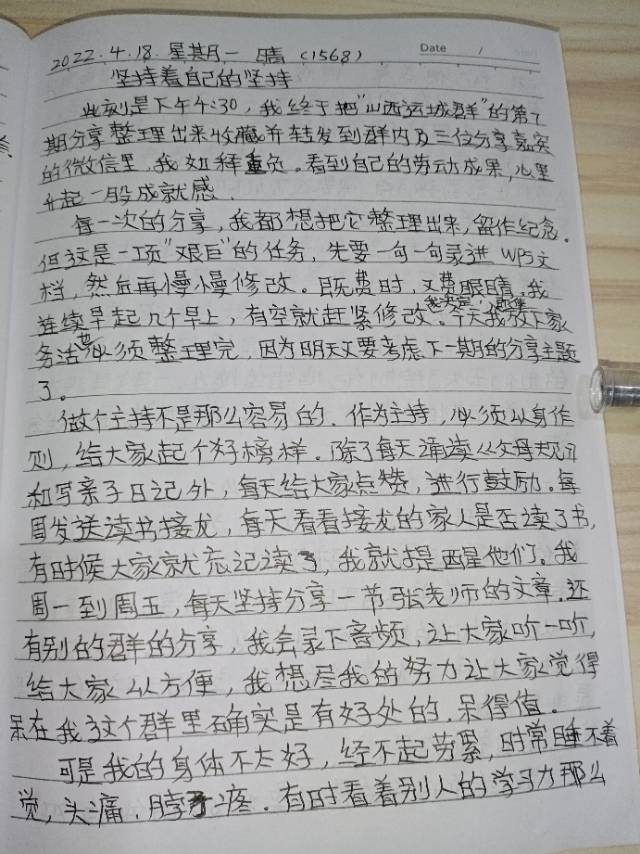 Date /
2022.4.18 星期一 晴 (1568)
坚持着自己的坚持
此刻是下午4:30,我终于把"山西运城群"的第7
期分享整理出来收藏并转发到群内及三位分享嘉宾
的微信里,我如释重负。看到自己的劳动成果,心里
升起一股成就感。
每一次的分享,我都想把它整理出来,留作纪念。
但这是一项"艰巨"的任务,先要一句一句录进WPS文
档,然后再慢慢修改。既费时,又费眼睛。我
连续早起几个早上,有空就赶紧修改。今天我放下家
务活也必须整理完,因为明天又要考虑下一期的分享主题
了。
做个主持不是那么容易的.作为主持,必须以身作
则,给大家起个好榜样。除了每天诵读《父母规》
和写亲子日记外,每天给大家点赞,进行鼓励。每
周发送读书接龙,每天看看接龙的家人是否读了书,
有时候大家就忘记读了,我就提醒他们。我
周一到周五,每天坚持分享一节张老师的文章.还
有别的群的分享,我会录下音频,让大家听一听,
给大家以方便,我想尽我的努力让大家觉得
呆在我这个群里确实是有好处的.呆得值.
可是我的身体不太好,经不起劳累,时常睡不着
觉,头痛.脖子疼.有时看着别人的学习力那么